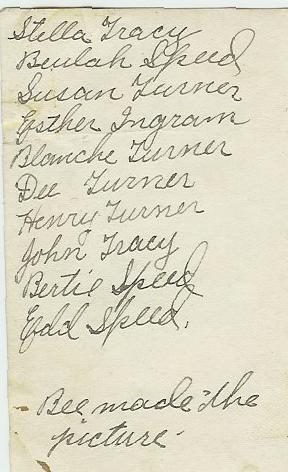 Stella Tracy
Beulah Speed
Susan Turner
Esther Ingram
Blanche Turner
Dee Turner
Henry Turner
John Tracy
Bertie Speed
Edd Speed.
Bee made the
picture.